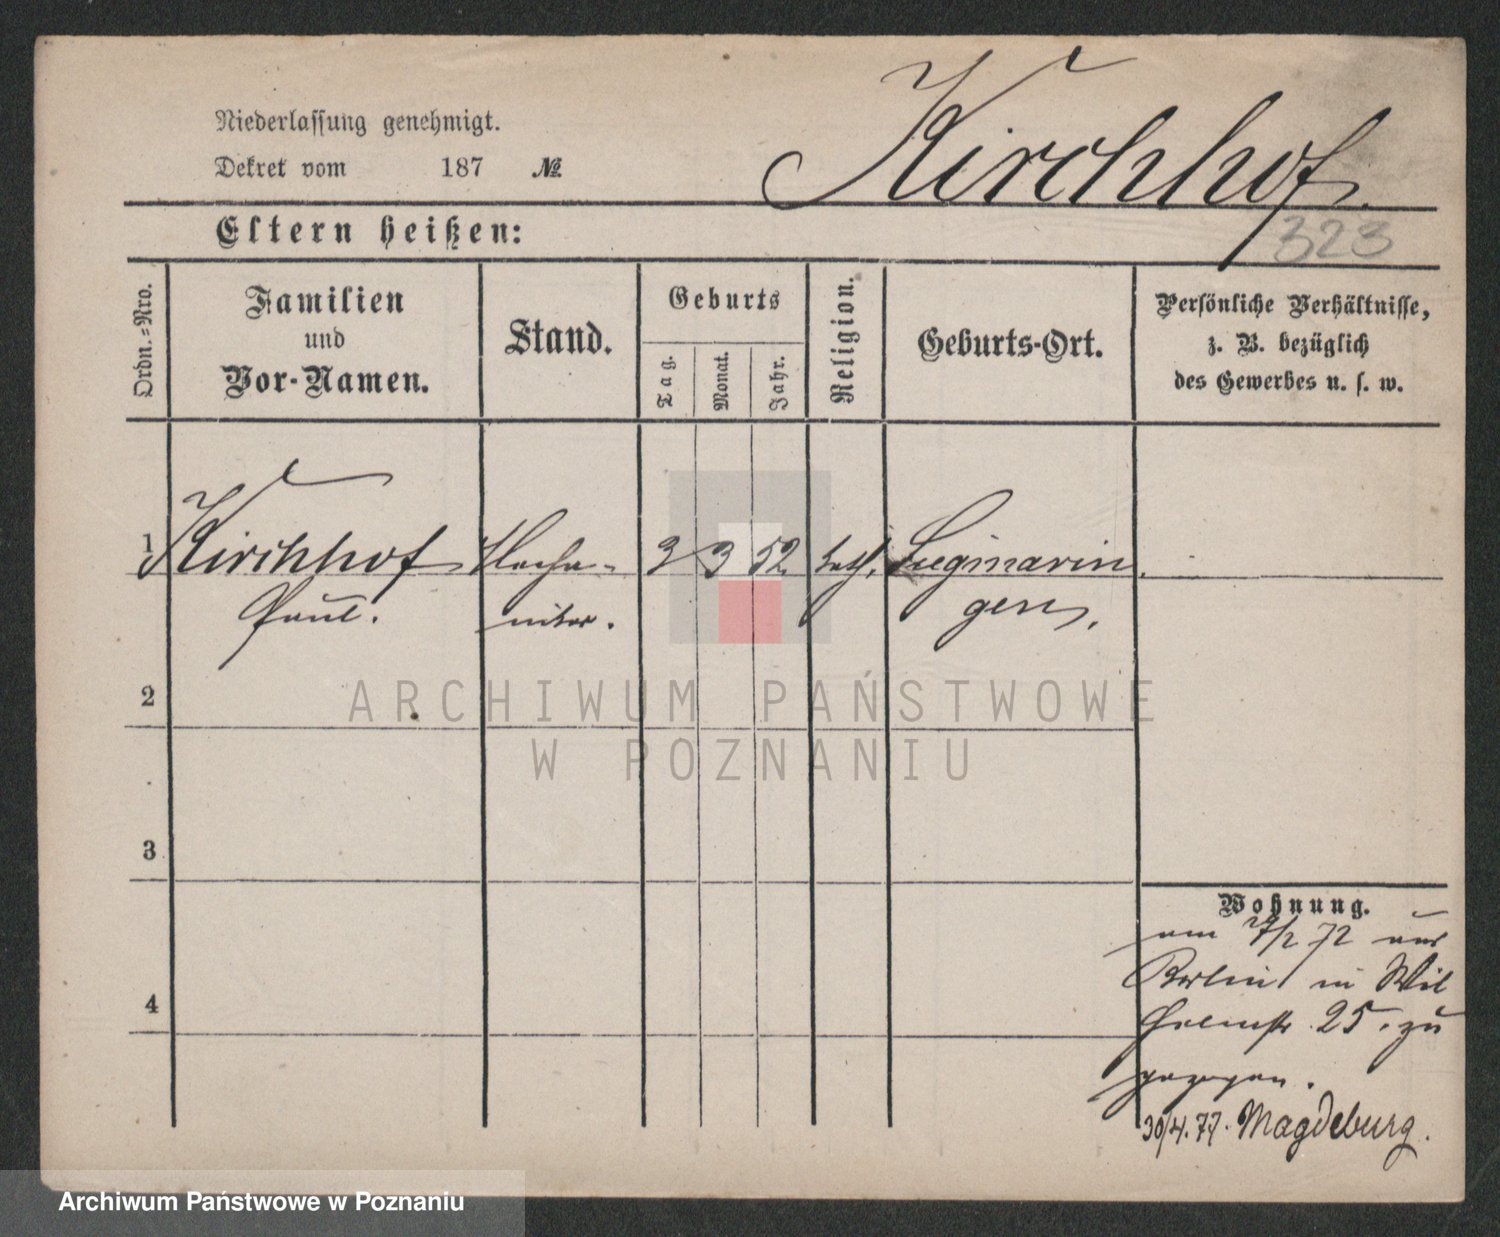 Kirchhof.
Niederlassung genehmigt.
Dekret vom 187 №
323
Eltern heißen:
Ordn.-Nro.
Familien
und
Vor-Namen.
Stand.
Geburts
Tag.
Monat.
Jahr.
Religion.
Geburts-Ort.
Persönliche Verhältnisse,
z. B. bezüglich
des Gewerbes u. s. w.
1 Kirchhof Mecha- 3 3 52 kath. Siegmarin
Paul. niker. gen.
2
3
4
Wohnung.
am /2 72 aus
Berlin in Wil
helmstr. 25. zu
gezogen.
30/4. 77. Magdeburg.
ARCHIWUM PAŃSTWOWE
W POZNANIU
Archiwum Państwowe w Poznaniu